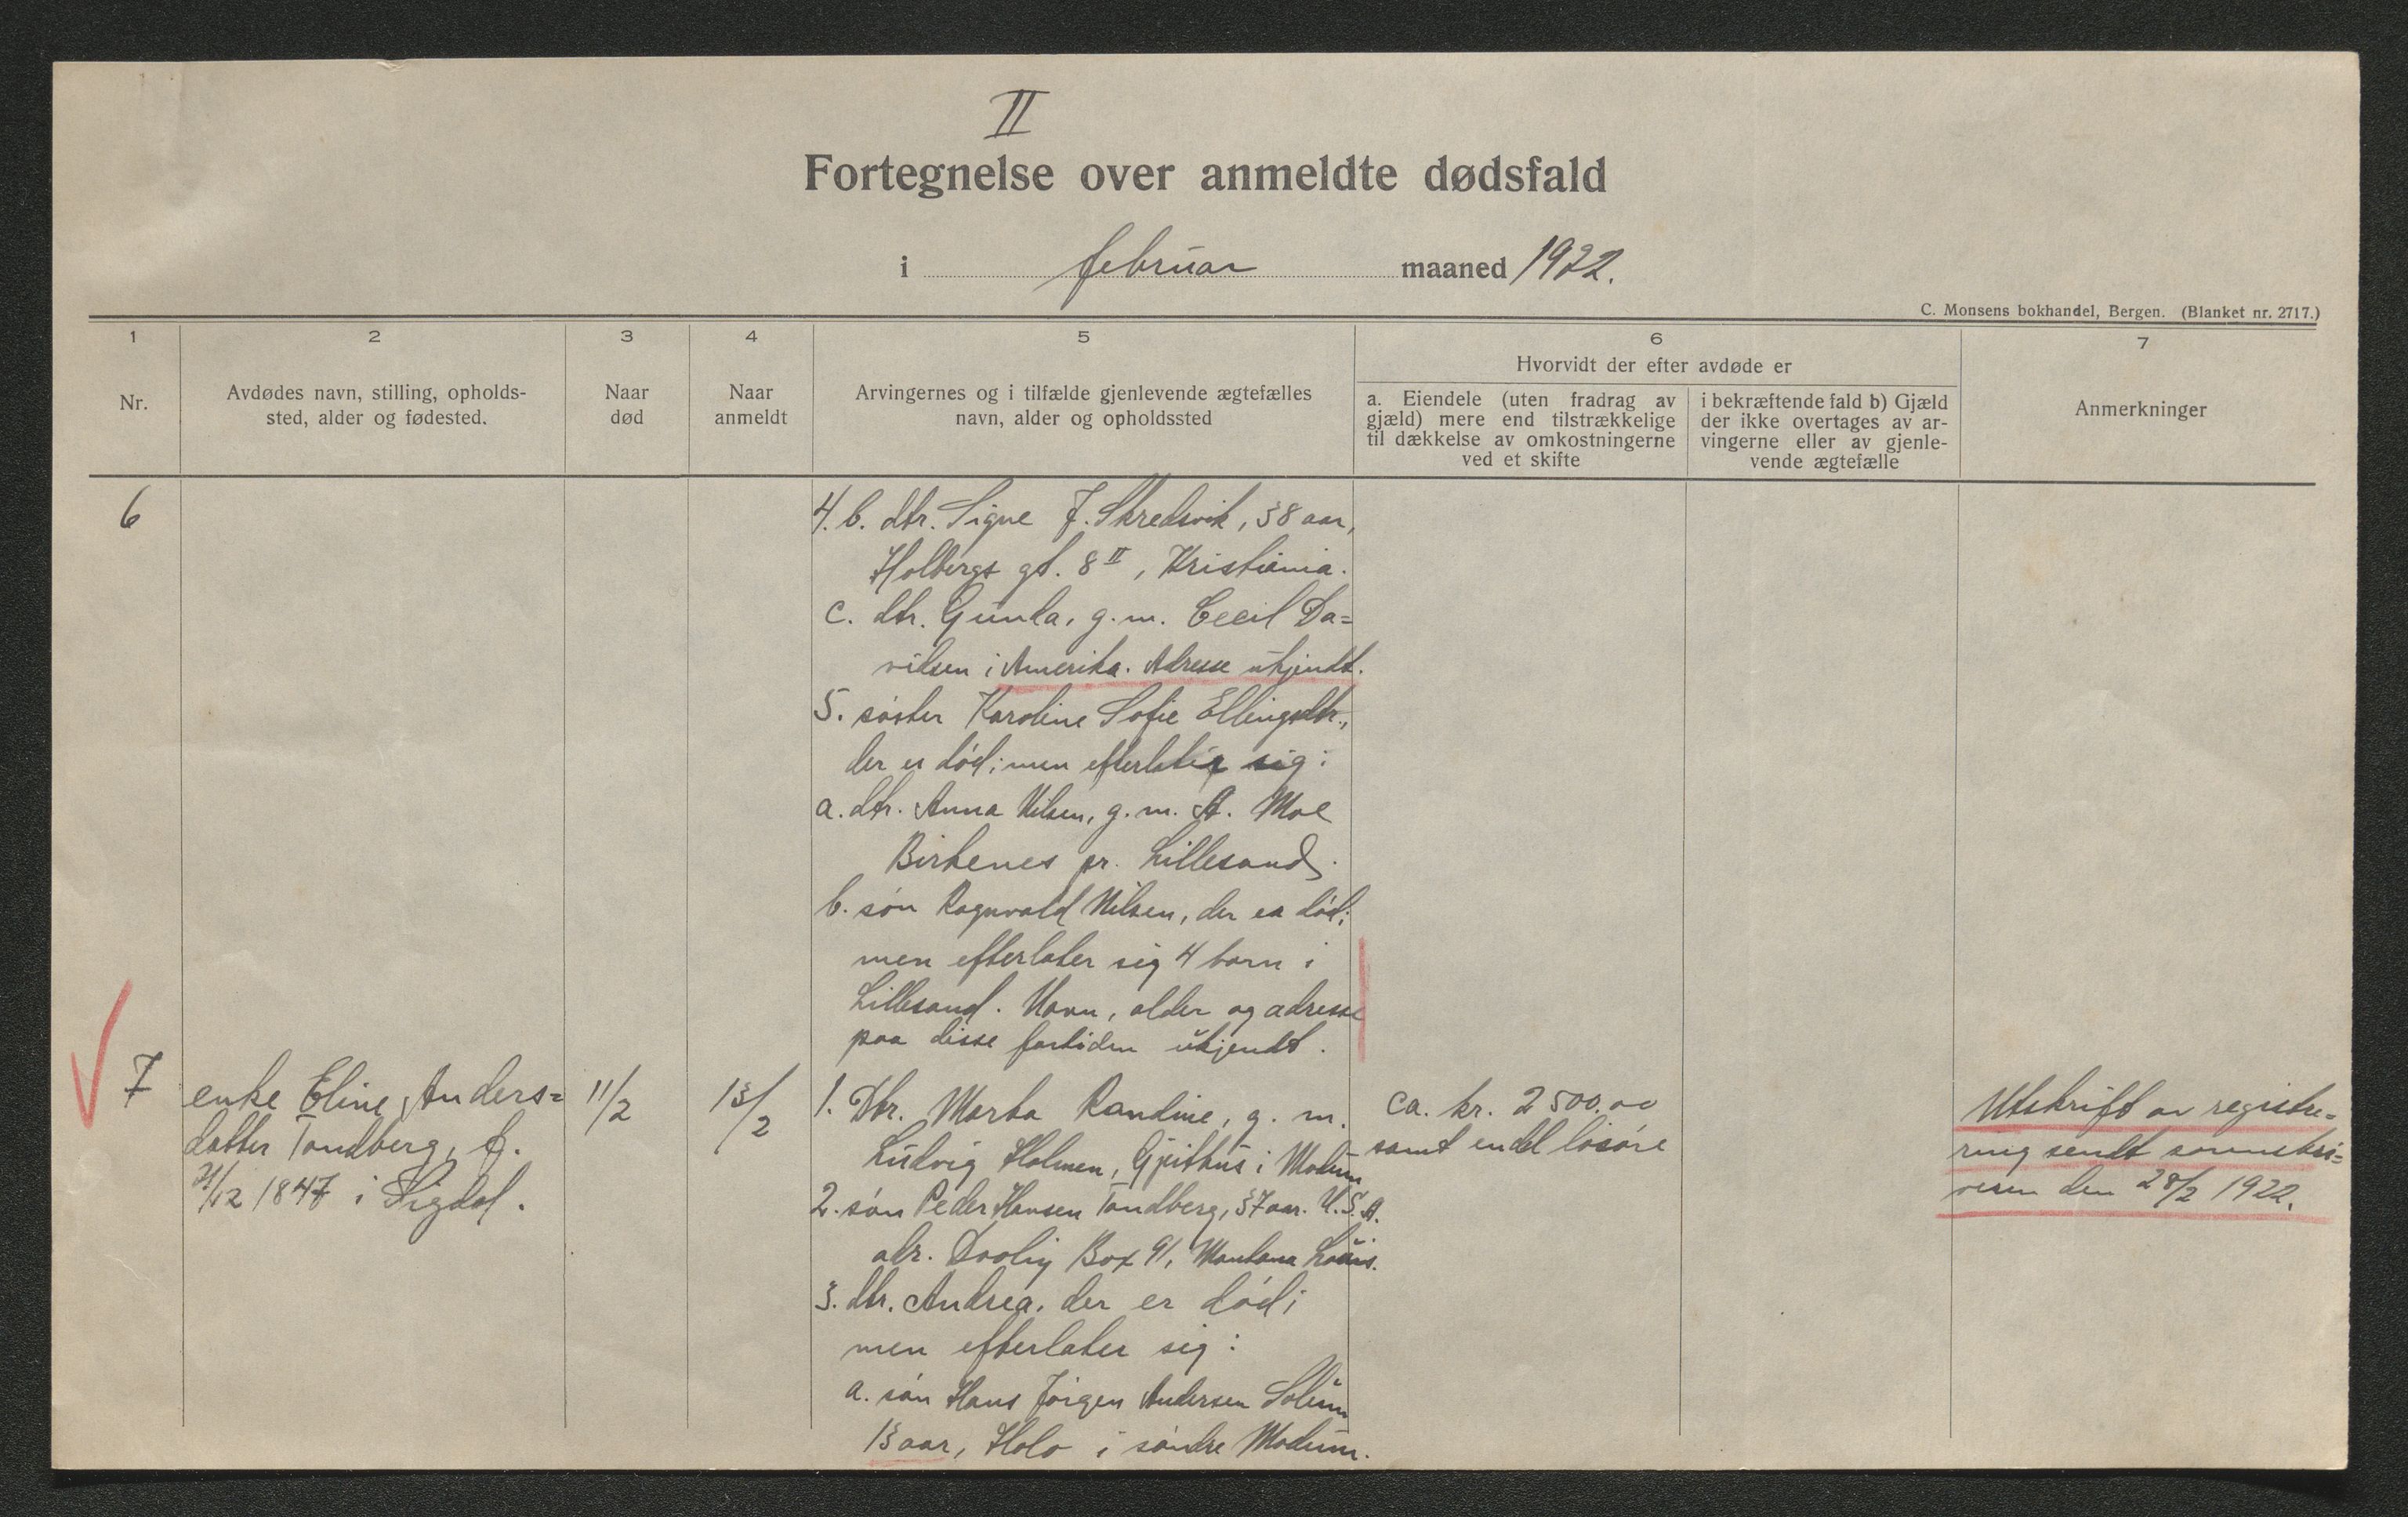 II
Fortegnelse over anmeldte dødsfald
i februar maaned 1922.
C. Monsens bokhandel, Bergen. (Blanket nr. 2717.)
1
2
3
4
5
6
7
Nr.
Avdødes navn, stilling, opholds-
sted, alder og fødested.
Naar
død
Naar
anmeldt
Arvingernes og i tilfælde gjenlevende ægtefælles
navn, alder og opholdssted
Hvorvidt der efter avdøde er
a. Eiendele (uten fradrag av
gjæld) mere end tilstrækkelige
til dækkelse av omkostningerne
ved et skifte
i bekræftende fald b) Gjæld
der ikke overtages av ar-
vingerne eller av gjenle-
vende ægtefælle
Anmerkninger
6
4. b. dtr. Signe F. Skredsvik, 38 aar,
Holbergs gt. 8 II, Kristiania.
c. dtr. Gunda, g.m. Cecil Da=
vilsen i Amerika. Adresse ukjendt.
5. søster Karoline Sofie Ellingsdtr.,
der er død; men efterlater sig:
a. dtr. Anna Nilsen, g. m. A. Moe
Birkenes pr. Lillesand.
b. søn Ragnvald Nilsen, der er død;
men efterlater sig 4 barn i
Lillesand. Navn, alder og adresse
paa disse fortiden ukjendt.
7
enke Eline Anders=
datter Tandberg, f.
21/12 1847 i Sigdal.
11/2
13/2
1. Dtr. Marta Randine, g. m.
Ludvig Holmen, Gjethus i Modum
2. søn Peder Hansen Tandberg, 37 aar. U.S.A.
adr. Dooliy Box 91, Montana Louis.
3. dtr. Andrea, der er død;
men efterlater sig:
a. søn Hans Jørgen Andersen Solum
13 aar, Holo i søndre Modum.
ca. kr. 2500.00
samt endel løsøre
Utskrift av registre=
ring sendt
den 28/2 1922.